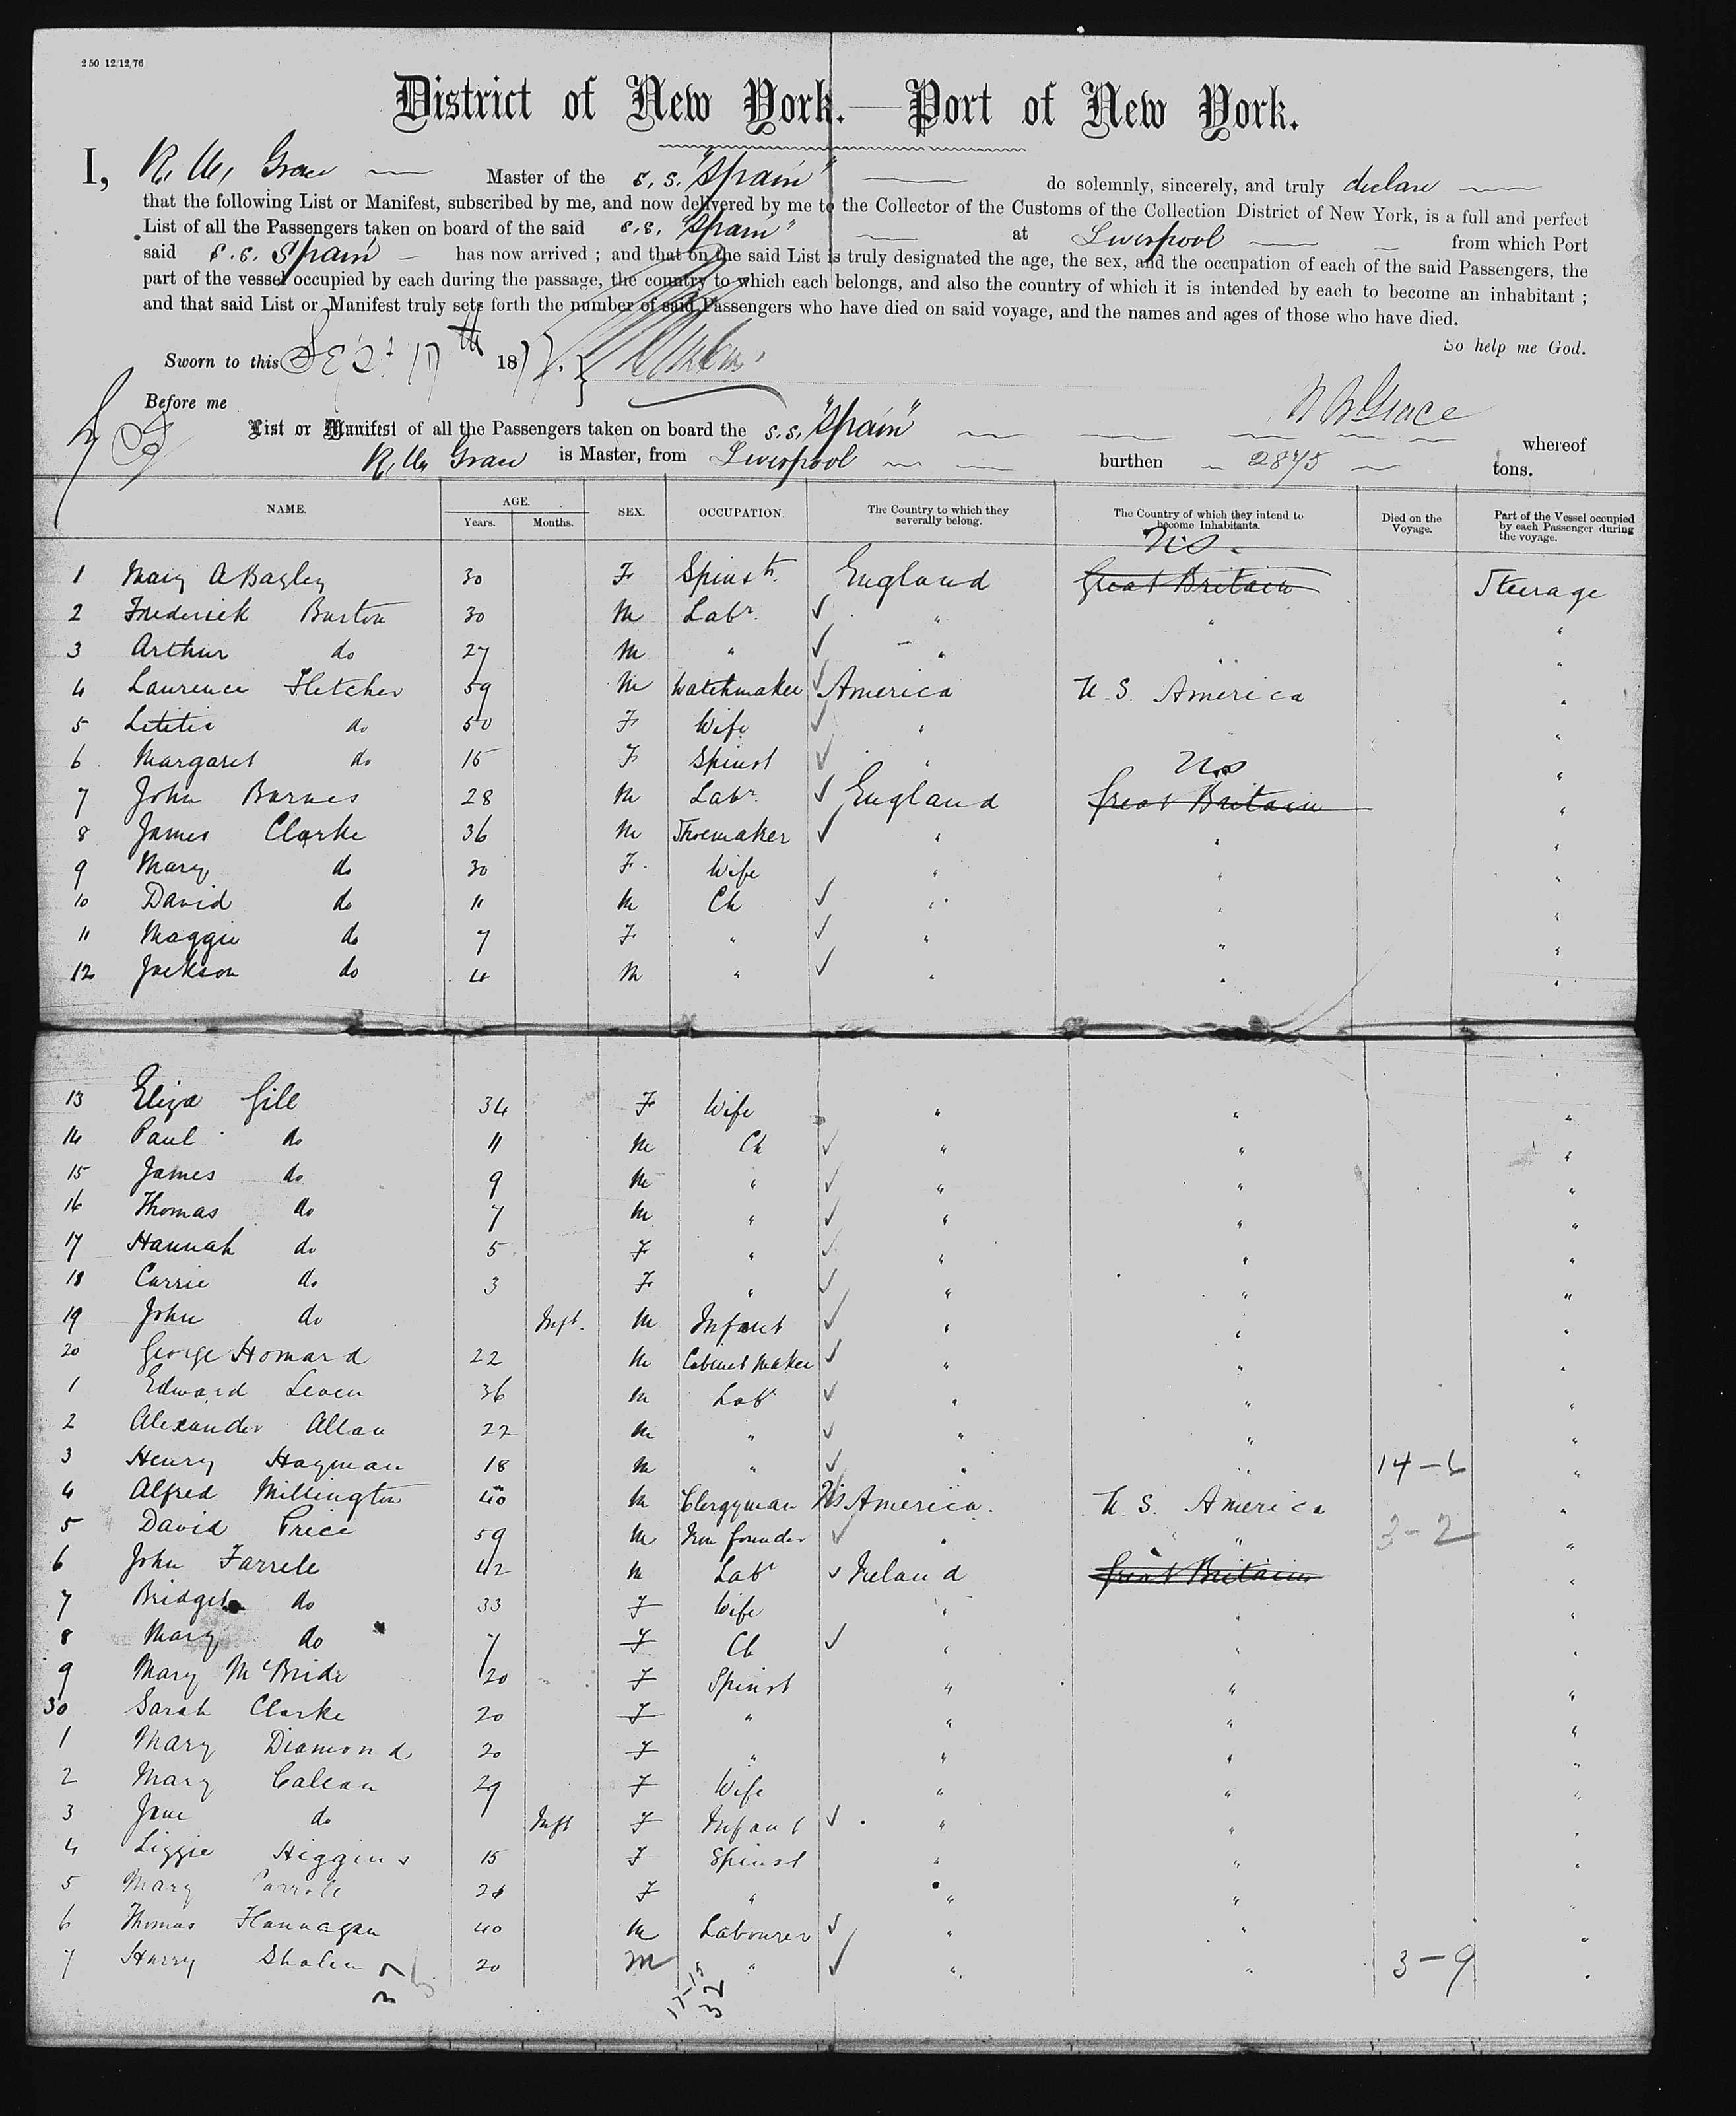 250 12/12/76
District of New York.—Port of New York.
I, R. W. Grace — Master of the s.s. "Spain" — do solemnly, sincerely, and truly declare —
that the following List or Manifest, subscribed by me, and now delivered by me to the Collector of the Customs of the Collection District of New York, is a full and perfect
List of all the Passengers taken on board of the said s.s. "Spain" — at Liverpool — from which Port
said s.s. Spain — has now arrived ; and that on the said List is truly designated the age, the sex, and the occupation of each of the said Passengers, the
part of the vessel occupied by each during the passage, the country to which each belongs, and also the country of which it is intended by each to become an inhabitant ;
and that said List or Manifest truly sets forth the number of said Passengers who have died on said voyage, and the names and ages of those who have died.
So help me God.
Sworn to this Sept 17th 1877.
Before me
R W Grace
List or Manifest of all the Passengers taken on board the s.s. "Spain" — whereof
R. W. Grace is Master, from Liverpool — burthen — 2875 — tons.
NAME. AGE. Years. Months. SEX. OCCUPATION. The Country to which they severally belong. The Country of which they intend to become Inhabitants. Died on the Voyage. Part of the Vessel occupied by each Passenger during the voyage.
U.S.
1 Mary A Bagley 30 F Spinstr. England Great Britain Steerage
2 Frederick Burton 30 M Labr. ✓ " " "
3 Arthur do 27 M " ✓ " " "
4 Laurence Fletcher 59 M Watchmaker ✓ America U.S. America "
5 Letitia do 50 F Wife ✓ " "
6 Margaret do 15 F Spinst ✓ " "
US
7 John Barnes 28 M Labr. ✓ England Great Britain "
8 James Clarke 36 M Shoemaker ✓ " " "
9 Mary do 30 F. Wife " " "
10 David do 11 M Ch ✓ " " "
11 Maggie do 7 F " ✓ " " "
12 Jackson do 4 M " ✓ " " "
13 Eliza Gill 34 F Wife " " "
14 Paul do 11 M Ch ✓ " " "
15 James do 9 M " ✓ " " "
16 Thomas do 7 M " ✓ " " "
17 Hannah do 5 F " ✓ " " "
18 Carrie do 3 F " ✓ " " "
19 John do Inft. M Infant ✓ " " "
20 George Homard 22 M Cabinet Maker ✓ " " "
1 Edward Leven 36 M Labr ✓ " " "
2 Alexander Allan 22 M " ✓ " " "
3 Henry Hayman 18 M " ✓ " " 14-6 "
4 Alfred Millington 40 M Clergyman US America. U.S. America "
5 David Price 59 M Iron founder ✓ " " 3-2 "
6 John Farrell 42 M Labr ✓ Ireland Great Britain "
7 Bridget do 33 F Wife " " "
8 Mary do 7 F Ch ✓ " " "
9 Mary McBride 20 F Spinst " " "
30 Sarah Clarke 20 F " " " "
1 Mary Diamond 20 F " " " "
2 Mary Calean 29 F Wife " " "
3 Jane do Inft F Infant ✓ " " "
4 Lizzie Higgins 15 F Spinst " " "
5 Mary Carroll F " " "
6 Thomas Flannagan 40 M Labourer ✓ " " "
7 Harry 20 M " ✓ " " 3-9 "
17-15
32